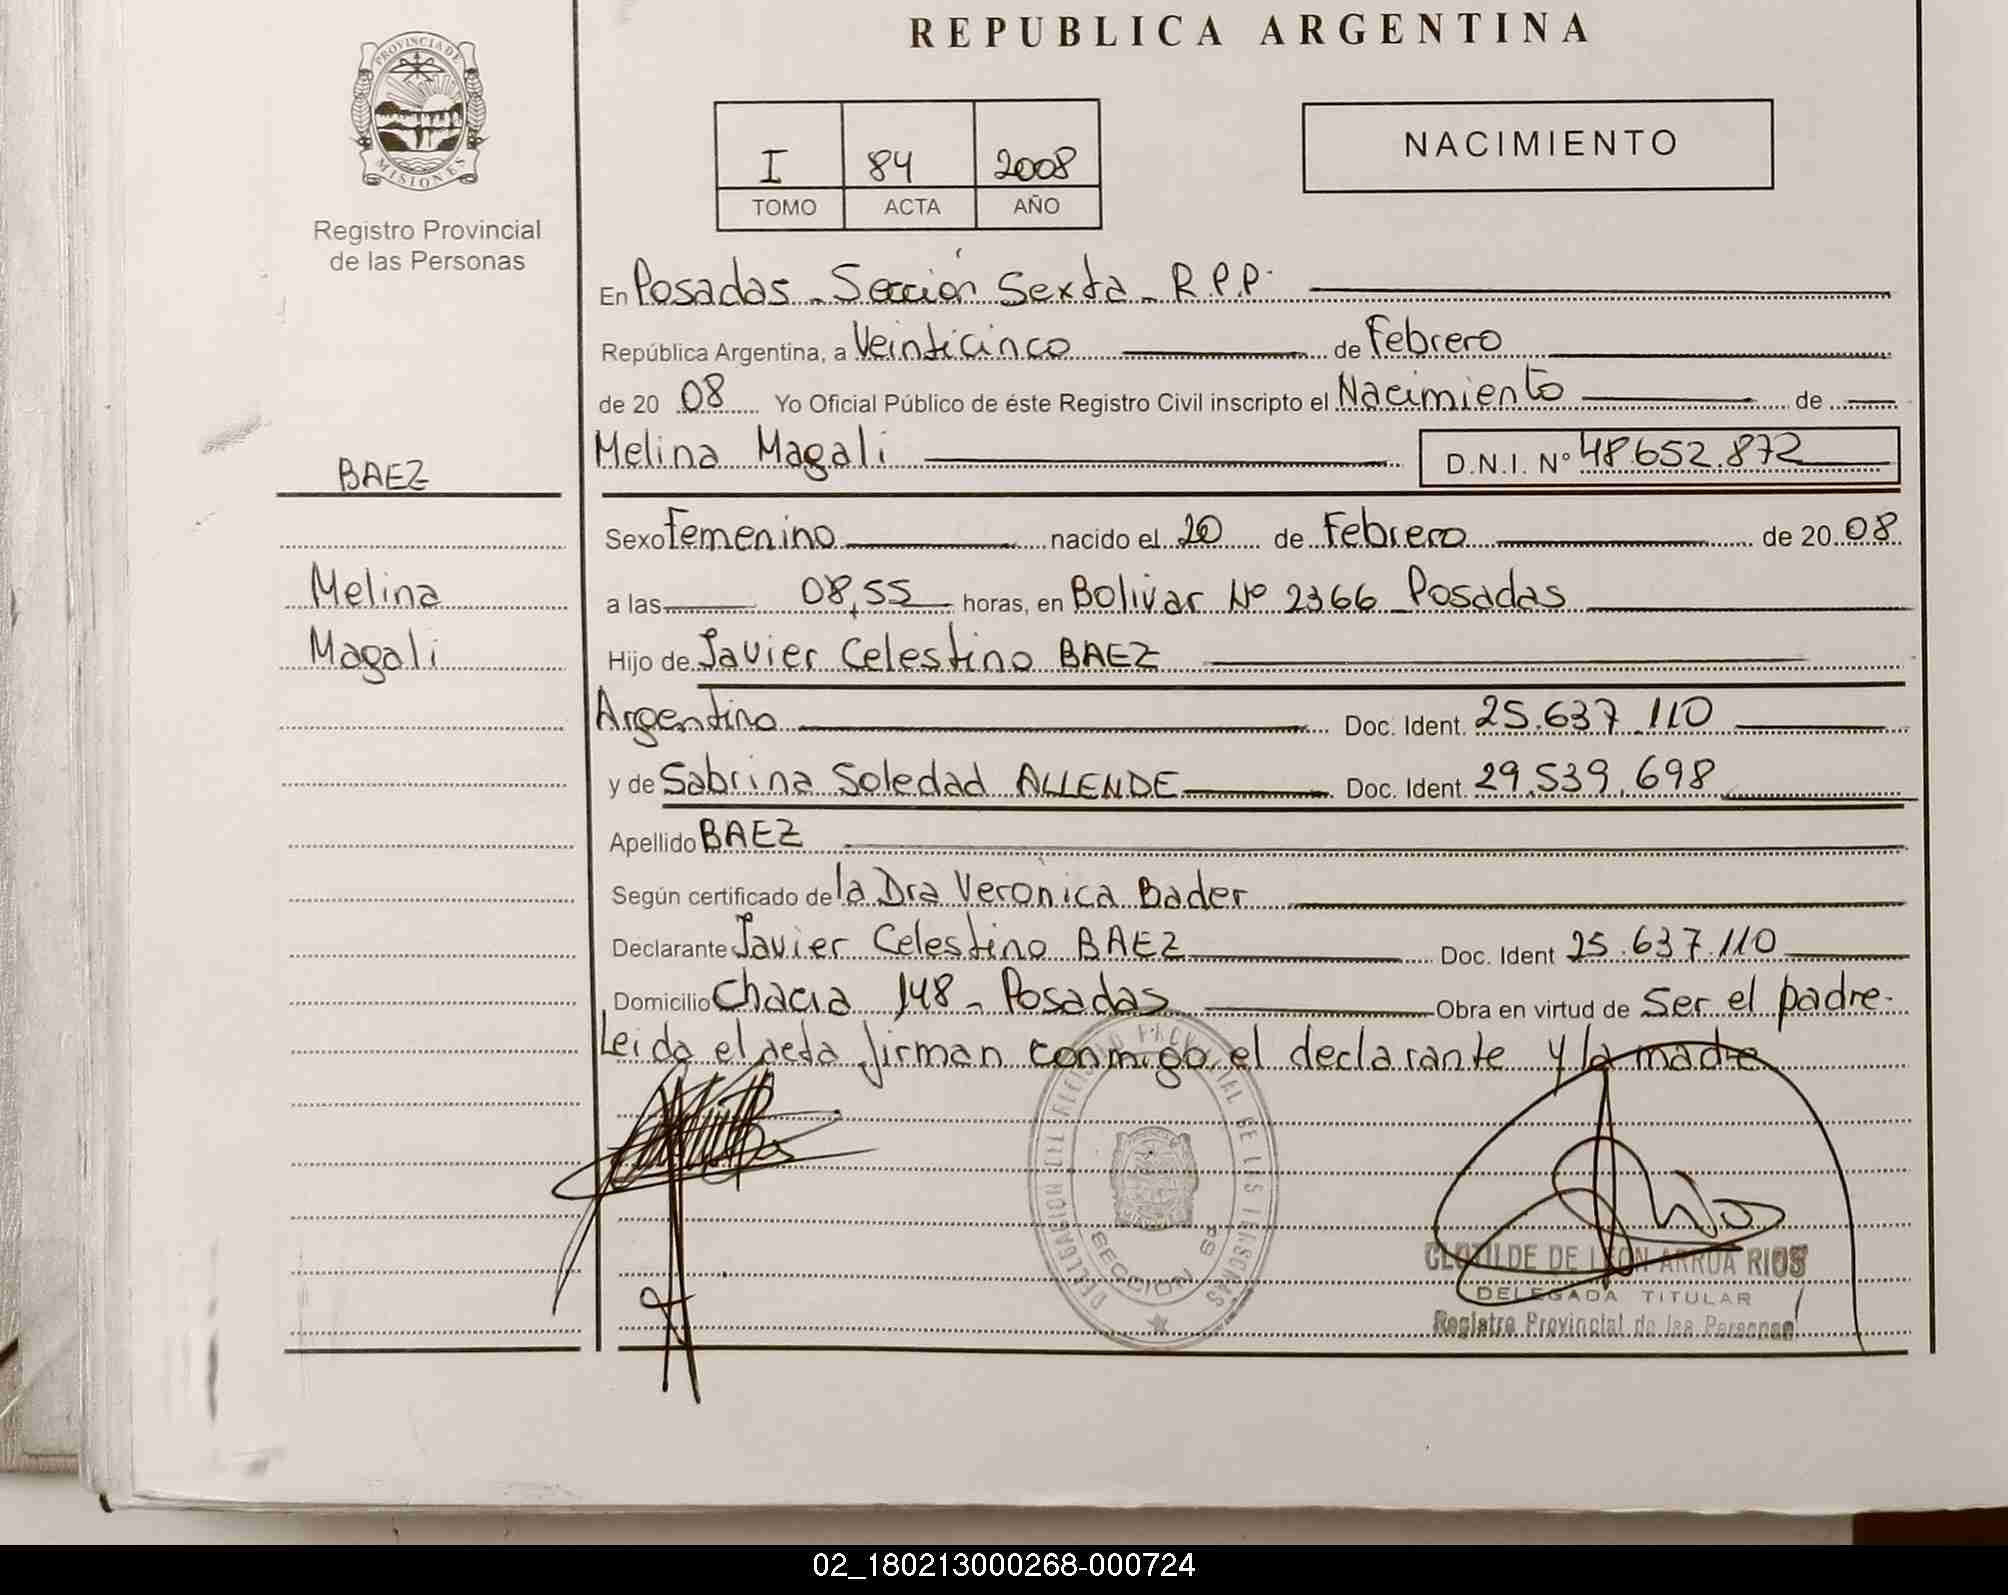 REPUBLICA ARGENTINA
PROVINCIA DE
MISIONES
Registro Provincial
de las Personas
I 84 2008
TOMO ACTA AÑO
NACIMIENTO
En Posadas - Sección Sexta - R.P.P.
República Argentina, a Veinticinco de Febrero
de 20 08 Yo Oficial Público de éste Registro Civil inscripto el Nacimiento de
Melina Magali D.N.I. Nº 48.652.872
BAEZ
Melina
Magali
Sexo Femenino nacido el 20 de Febrero de 20 08
a las 08,55 horas, en Bolivar Nº 2366 Posadas
Hijo de Javier Celestino BAEZ
Argentino Doc. Ident. 25.637.110
y de Sabrina Soledad ALLENDE Doc. Ident. 29.539.698
Apellido BAEZ
Según certificado de la Dra Veronica Bader
Declarante Javier Celestino BAEZ Doc. Ident 25.637.110
Domicilio Chacra 148 - Posadas Obra en virtud de Ser el padre.
Leida el acta firman conmigo el declarante y la madre
DELEGACION DEL REGISTRO PROVINCIAL DE LAS PERSONAS
SECCION 6ª
CLOTILDE DE LEON ARRUA RIOS
DELEGADA TITULAR
Registro Provincial de las Personas
02_180213000268-000724